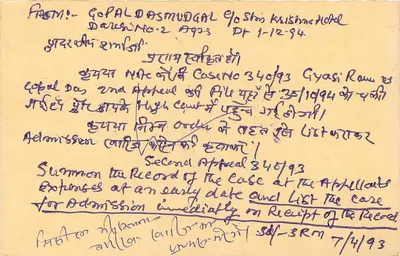 From:- GOPAL DASMUDGAL C/o Shri Krishna Hotel
Daresi No-2 Agra Dt 1-12-94
आदरणीय शर्माजी
प्रणाम स्वीकृत हो।
कृपया NAC की Case No 340/93 Gyasi Ram vs
Gopal Das 2nd Appeal की File यहाँ से 31/10/94 को चली
गई है और आपके High Court में पहुँच गई होगी।
कृपया निम्न order के तहत इसे List कराकर
Admission खारिज होने की कृपा करें।
Second Appeal 340/93
Summon the Record of the Case at the Appellants
Expenses at an early date and List the case
for Admission immediately on Receipt of the Record
Sd/- SRM
7/4/93